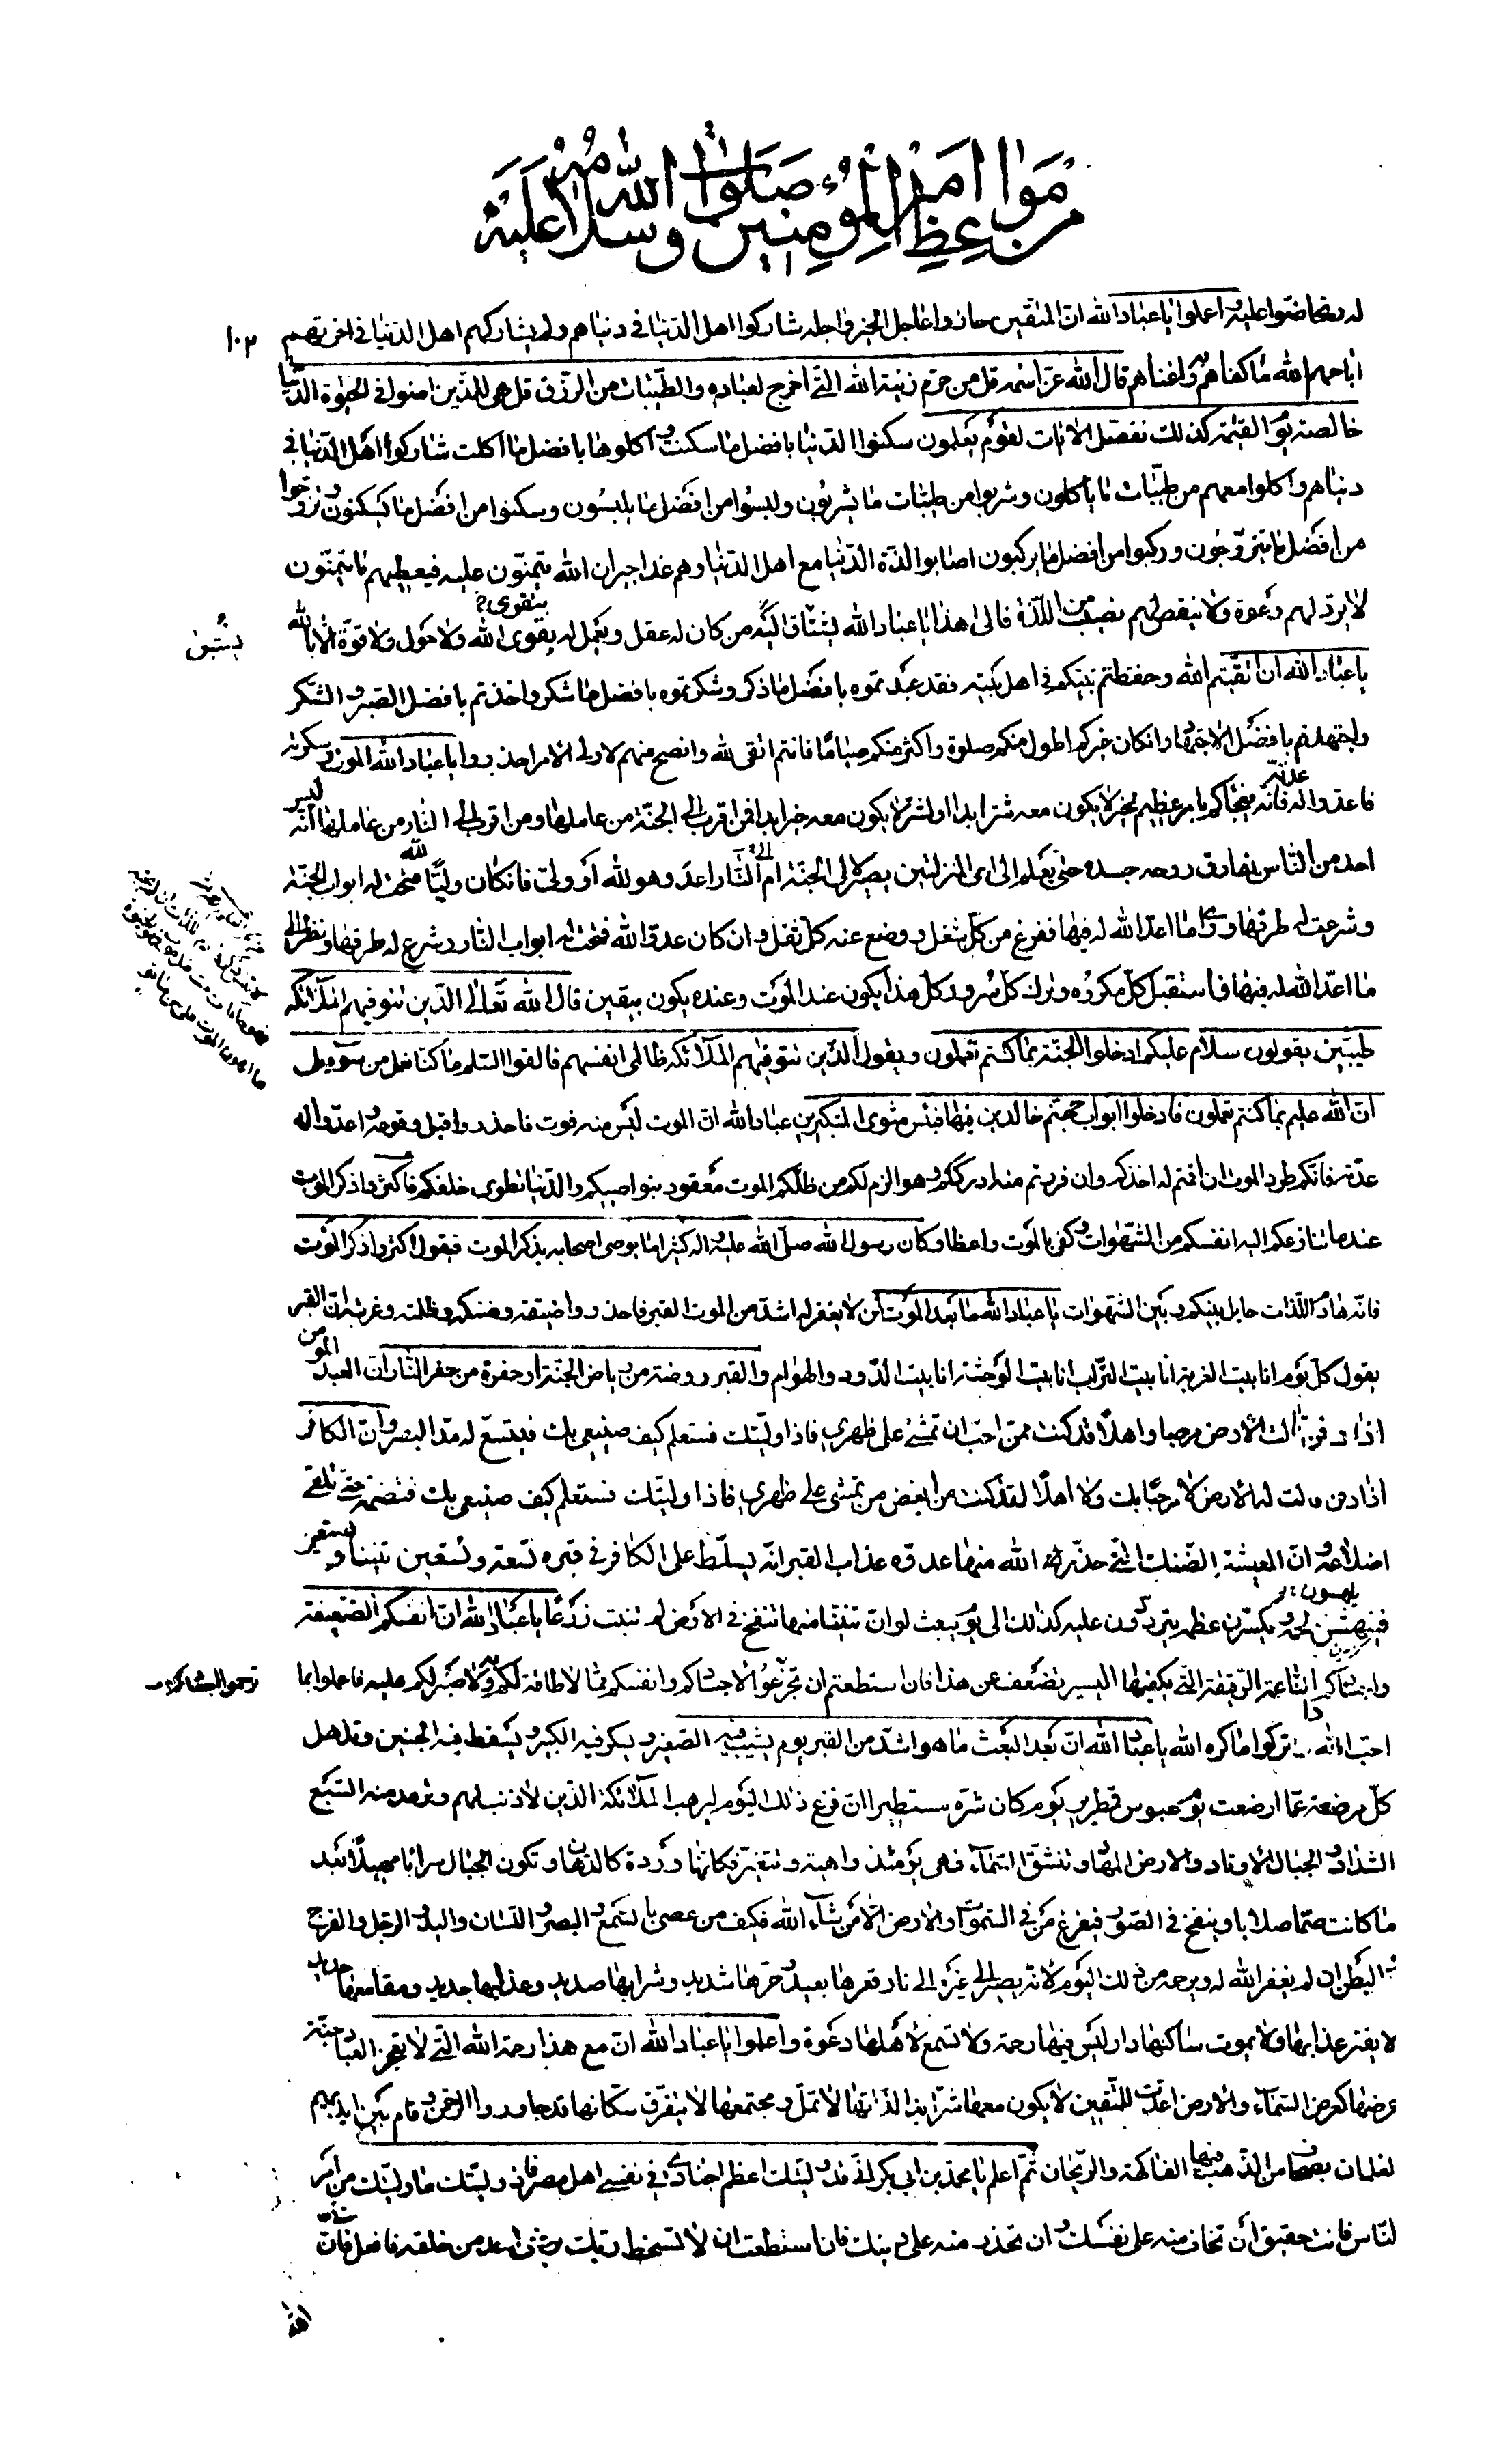 من مواعظ امير المؤمنين صلوات الله وسلامه عليه
١٠٢
له وتحاضوا عليه اعلموا يا عباد الله ان المتقين حازوا عاجل الخير واجله شاركوا اهل الدنيا في دنياهم ولم يشاركهم اهل الدنيا في اخرتهم
اباحهم الله ما كفاهم به واغناهم قال الله عز اسمه قل من حرم زينة الله التي اخرج لعباده والطيبات من الرزق قل هي للذين امنوا في الحيوة الدنيا
خالصة يوم القيمة كذلك نفصل الايات لقوم يعلمون سكنوا الدنيا بافضل ما سكنت و اكلوها بافضل ما اكلت شاركوا اهل الدنيا في
دنياهم واكلوا معهم من طيبات ما ياكلون وشربوا من طيبات ما يشربون ولبسوا من افضل ما يلبسون وسكنوا من افضل ما يسكنون وتزوجوا
من افضل ما يتزوجون وركبوا من افضل ما يركبون اصابوا لذة الدنيا مع اهل الدنيا وهم غدا جيران الله يتمنون عليه فيعطيهم ما يتمنون
لا يرد لهم دعوة ولا ينقص لهم نصيب من اللذة فالى هذا يا عباد الله يشتاق اليه من كان له عقل ويعمل له بتقوى الله ولا حول ولا قوة الا بالله
يا عباد الله ان اتقيتم الله وحفظتم نبيكم في اهل بيته فقد عبدتموه بافضل ما ذكر وشكرتموه بافضل ما شكر واخذتم بافضل الصبر و الشكر
واجتهدتم بافضل الاجتهاد وانكان غيركم اطول منكم صلوة واكثر منكم صياما فانتم اتقى لله وانصح منهم لاولى الامر احذروا يا عباد الله الموت وسكرته
فاعدوا له عدته فانه يفجاكم بامر عظيم بخير لا يكون معه شر ابدا او لشر لا يكون معه خير ابدا فمن اقرب الى الجنة من عاملها ومن اقرب الى النار من عاملها انه ليس
احد من الناس تفارق روحه جسده حتى يعلم الى اى المنزلتين يصير الى الجنة ام الى النار اعدو هو لله او ولى فانكان وليا لله فتحت له ابواب الجنة
وشرعت له طرقها وراى ما اعد الله له فيها ففرغ من كل شغل ووضع عنه كل ثقل وان كان عدو الله فتحت له ابواب النار وشرع له طرقها ونظر الى
ما اعد الله له فيها فاستقبل كل مكروه وترك كل سرور كل هذا يكون عند الموت وعنده يكون بيقين قال الله تعالى الذين تتوفيهم الملائكه
طيبين يقولون سلام عليكم ادخلوا الجنة بما كنتم تعملون ويقول الذين تتوفيهم الملائكه ظالمى انفسهم فالقوا السلم ما كنا نعمل من سوء بلى
ان الله عليم بما كنتم تعملون فادخلوا ابواب جهنم خالدين فيها فبئس مثوى المتكبرين عباد الله ان الموت ليس منه فوت فاحذروا قبل وقوعه و اعدوا له
عدته فانكم طرد الموت ان اقمتم له اخذكم وان فررتم منه ادرككم وهو الزم لكم من ظلكم الموت معقود بنواصيكم والدنيا تطوى خلفكم فاكثروا ذكر الموت
عند ما تنازعكم اليه انفسكم من الشهوات و كفى بالموت واعظا وكان رسول الله صلى الله عليه واله كثيرا ما يوصى اصحابه بذكر الموت فيقول اكثروا ذكر الموت
فانه هادم اللذات حايل بينكم وبين الشهوات يا عباد الله ما بعد الموت لمن لا يغفر له اشد من الموت القبر فاحذروا ضيقه وضنكه وظلمته وغربته ان القبر
يقول كل يوم انا بيت الغربة انا بيت التراب انا بيت الوحشة انا بيت الدود والهوام والقبر روضة من رياض الجنة او حفرة من حفر النار ان العبد المومن
اذا دفن قالت الارض مرحبا واهلا قد كنت ممن احب ان تمشى على ظهرى فاذا وليتك فستعلم كيف صنيعى بك فيتسع له مد البصر وان الكافر
اذا دفن قالت له الارض لا مرحبا بك ولا اهلا لقد كنت من ابغض من يمشى على ظهرى فاذا وليتك فستعلم كيف صنيعى بك فتضمه حتى تلتقى
اضلاعه و ان المعيشة الضنك التى حذر الله منها عدوه عذاب القبر انه يسلط على الكافر في قبره تسعة وتسعين تنينا
فينهشن لحمه و يكسرن عظمه يترددون عليه كذلك الى يوم يبعث لو ان تنينا منها تنفخ في الارض لم تنبت زرعا يا عباد الله ان انفسكم الضعيفة
واجسادكم الناعمة الرقيقة التى يكفيها اليسير تضعف عن هذا فان استطعتم ان تجزعوا لاجسادكم وانفسكم مما لا طاقة لكم به ولا صبر لكم عليه فاعملوا بما
احب الله و اتركوا ما كره الله يا عباد الله ان بعد البعث ما هو اشد من القبر يوم يشيب فيه الصغير و يسكر فيه الكبير و يسقط فيه الجنين وتذهل
كل مرضعة عما ارضعت يوم عبوس قمطرير يوم كان شره مستطيرا ان فزع ذلك اليوم ليرهب الملائكة الذين لا ذنب لهم وترعد منه السبع
الشداد و الجبال الاوتاد والارض المهاد وتنشق السماء فهى يومئذ واهية وتتغير فكانها وردة كالدهان وتكون الجبال سرابا مهيلا بعد
ما كانت صما صلابا وينفخ في الصور فيفزع من في السموات والارض الا من شاء الله فكيف من عصى بالسمع و البصر و اللسان واليد و الرجل والفرج
و البطن ان لم يغفر الله له ويرحمه من ذلك اليوم لانه يصير الى غيره الى نار قعرها بعيد و حرها شديد وشرابها صديد وعذابها جديد ومقامعها حديد
لا يفتر عذابها ولا يموت ساكنها دار ليس فيها رحمة ولا تسمع لاهلها دعوة واعلموا يا عباد الله ان مع هذا رحمة الله التى لا تعجز العباد جنة
عرضها كعرض السماء والارض اعدت للمتقين لا يكون معها شر ابدا لذاتها لا تمل و مجتمعها لا يتفرق سكانها قد جاوروا الرحمن و قام بين ايديهم
لغلمان بصحاف من الذهب فيها الفاكهة والريحان ثم اعلم يا محمد بن ابى بكر انى قد وليتك اعظم اجنادى في نفسى اهل مصر فاذ وليتك ما وليتك من امر
لناس فانت حقيق ان تخاف منه على نفسك و ان تحذر منه على دينك فان استطعت ان لا تسخط ربك برضى احد من خلقه فافعل فان